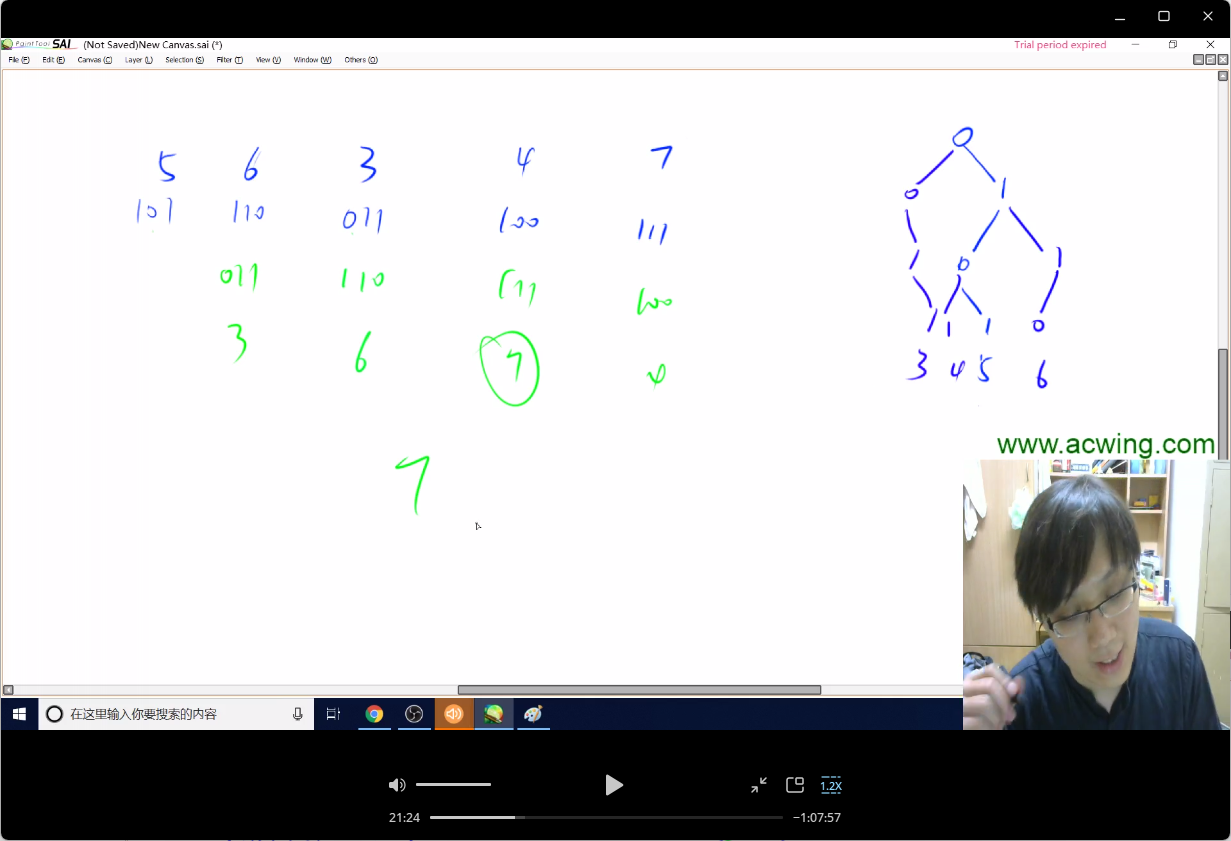 PaintTool SAI (Not Saved)New Canvas.sai (*) Trial period expired
File (F) Edit (E) Canvas (C) Layer (L) Selection (S) Filter (T) View (V) Window (W) Others (O)
5 6 3 4 7
101 110 011 100 111
011 110 111 100
3 6 7 4
7
0
0 1
1 0 1
1 1 1 0
3 4 5 6
www.acwing.com
在这里输入你要搜索的内容
1.2X
21:24 −1:07:57